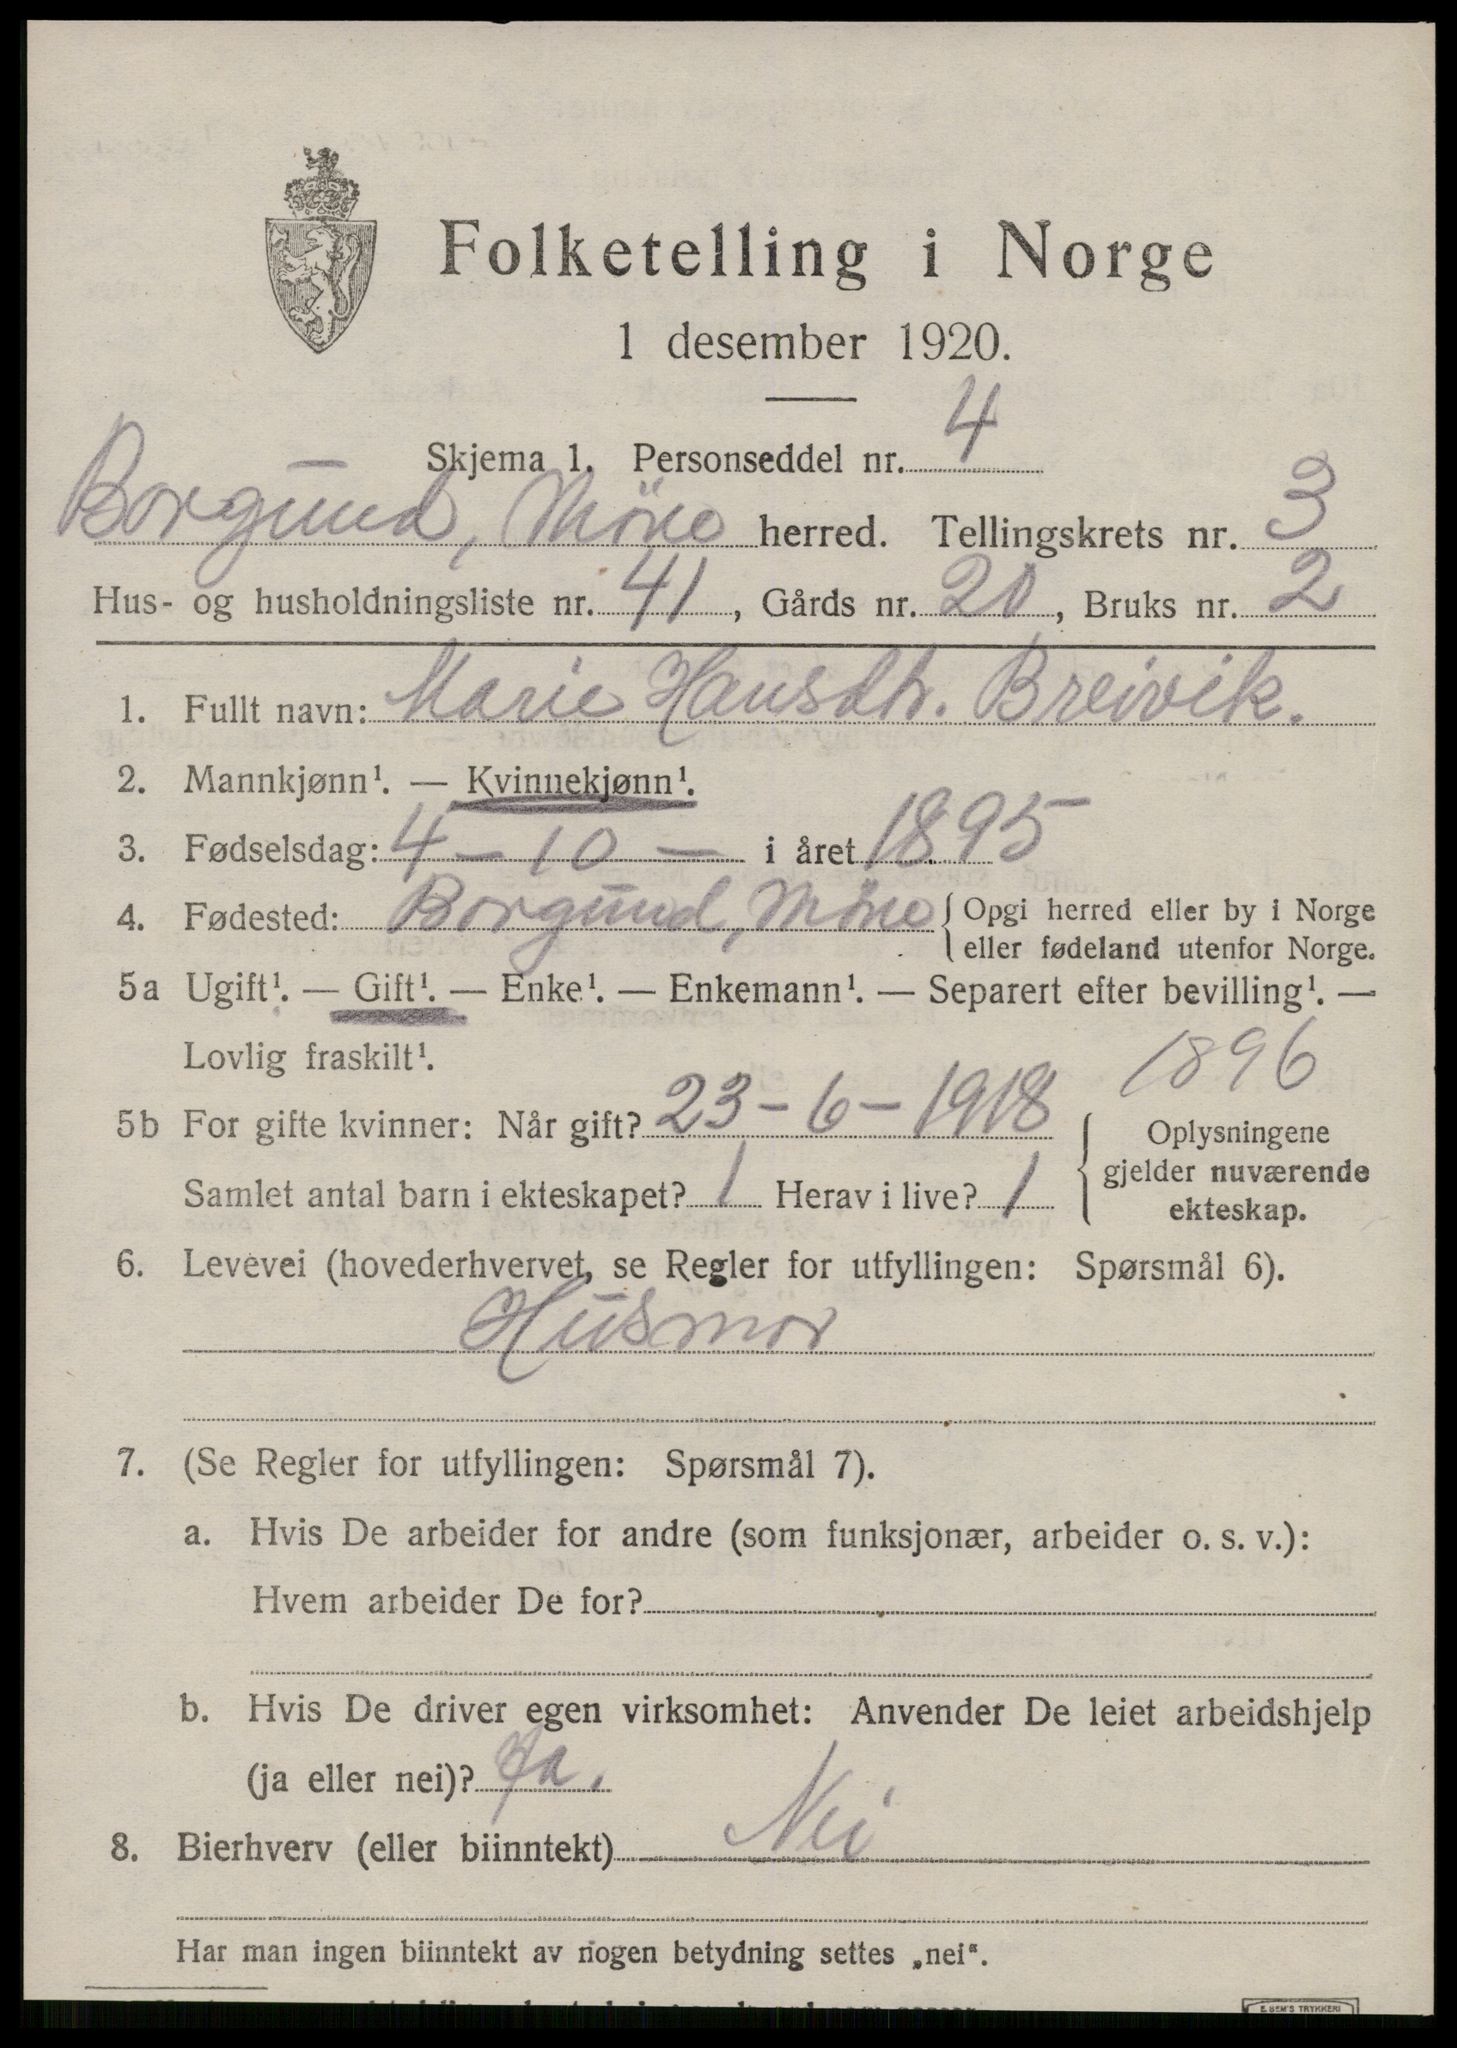 Folketelling i Norge
1 desember 1920.
Skjema 1. Personseddel nr. 4
Borgund, Möre herred. Tellingskrets nr. 3
Hus- og husholdningsliste nr. 41, Gårds nr. 20, Bruks nr. 2
1. Fullt navn: Marie Hansdtr. Breivik.
2. Mannkjønn¹. — Kvinnekjønn¹.
3. Fødselsdag: 4 - 10 - i året 1895
4. Fødested: Borgund, Möre { Opgi herred eller by i Norge
eller fødeland utenfor Norge.
5a Ugift¹. — Gift¹. — Enke¹. — Enkemann¹. — Separert efter bevilling¹. —
Lovlig fraskilt¹. 1896
5b For gifte kvinner: Når gift? 23 - 6 - 1918
Samlet antal barn i ekteskapet? 1 Herav i live? 1
{ Oplysningene
gjelder nuværende
ekteskap.
6. Levevei (hovederhvervet, se Regler for utfyllingen: Spørsmål 6).
Husmor
7. (Se Regler for utfyllingen: Spørsmål 7).
a. Hvis De arbeider for andre (som funksjonær, arbeider o. s. v.):
Hvem arbeider De for?
b. Hvis De driver egen virksomhet: Anvender De leiet arbeidshjelp
(ja eller nei)? Ja.
8. Bierhverv (eller biinntekt) Nei
Har man ingen biinntekt av nogen betydning settes „nei“.
E. SEM'S TRYKKERI